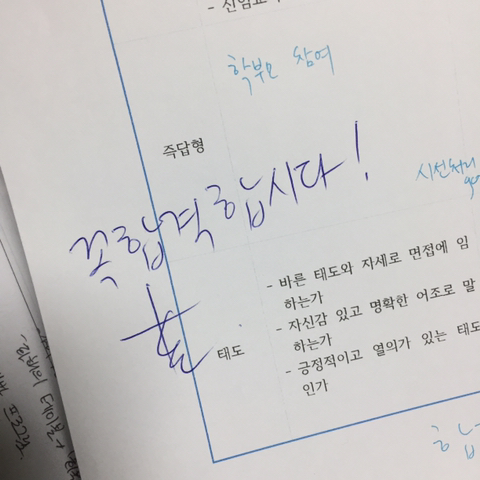 - 신임교
학부모 참여
즉답형
꼭합격합시다!
시선처리
태도
- 바른 태도와 자세로 면접에 임
하는가
- 자신감 있고 명확한 어조로 말
하는가
- 긍정적이고 열의가 있는 태도
인가